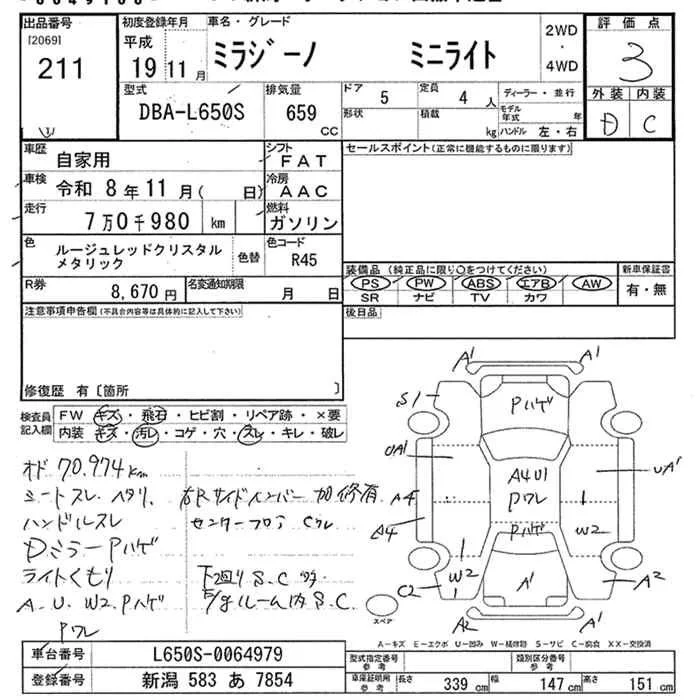 出品番号
[2069]
211
初度登録年月
平成
19 11月
車名・グレード
ミラジーノ ミニライト
2WD
・
4WD
評価点
3
外装 内装
D C
型式
DBA-L650S
排気量
659
CC
ドア
5
定員
4人
ディーラー・並行
形状
積載
kg
モデル年式 年
ハンドル 左・右
車歴
自家用
シフト
FAT
セールスポイント(正常に機能するものに限ります)
車検
令和 8年 11月( 日)
冷房
AAC
走行
7万0千980 km
燃料
ガソリン
色
ルージュレッドクリスタル
メタリック
色替
色コード
R45
装備品(純正品に限り○をつけてください)
新車保証書
PS PW ABS エアB AW
SR ナビ TV カワ
有・無
R券
8,670円
名変通知期限
月 日
後日品
注意事項申告欄(不具合内容等は具体的に記入して下さい)
修復歴 有〔箇所 〕
検査員
記入欄
FW キズ・飛石・ヒビ割・リペア跡・×要
内装 キズ・汚レ・コゲ・穴・スレ・キレ・破レ
オド 70.974km
シートスレ、ヘタリ、
ハンドルスレ
Dミラー Pハゲ
ライトくもり
A.U.W2.Pハゲ
Pワレ
右Rサイドメンバー 加修有
センターフロア Cワレ
下廻りS.C
ルーム内S.C
A1 A1
S1
Pハゲ
UA1
UA1
A4U1
Pワレ
A4
A4
W2
Pハゲ
W2
C2
A1
A2
A2 A1
スペア
A-キズ E-エクボ U-凹み W-補修跡 S-サビ C-腐食 XX-交換済
車台番号
L650S-0064979
登録番号
新潟 583 あ 7854
型式指定番号
参考
類別区分番号
参考
車庫証明用
参考
長さ
339 cm
幅
147 cm
高さ
151 cm